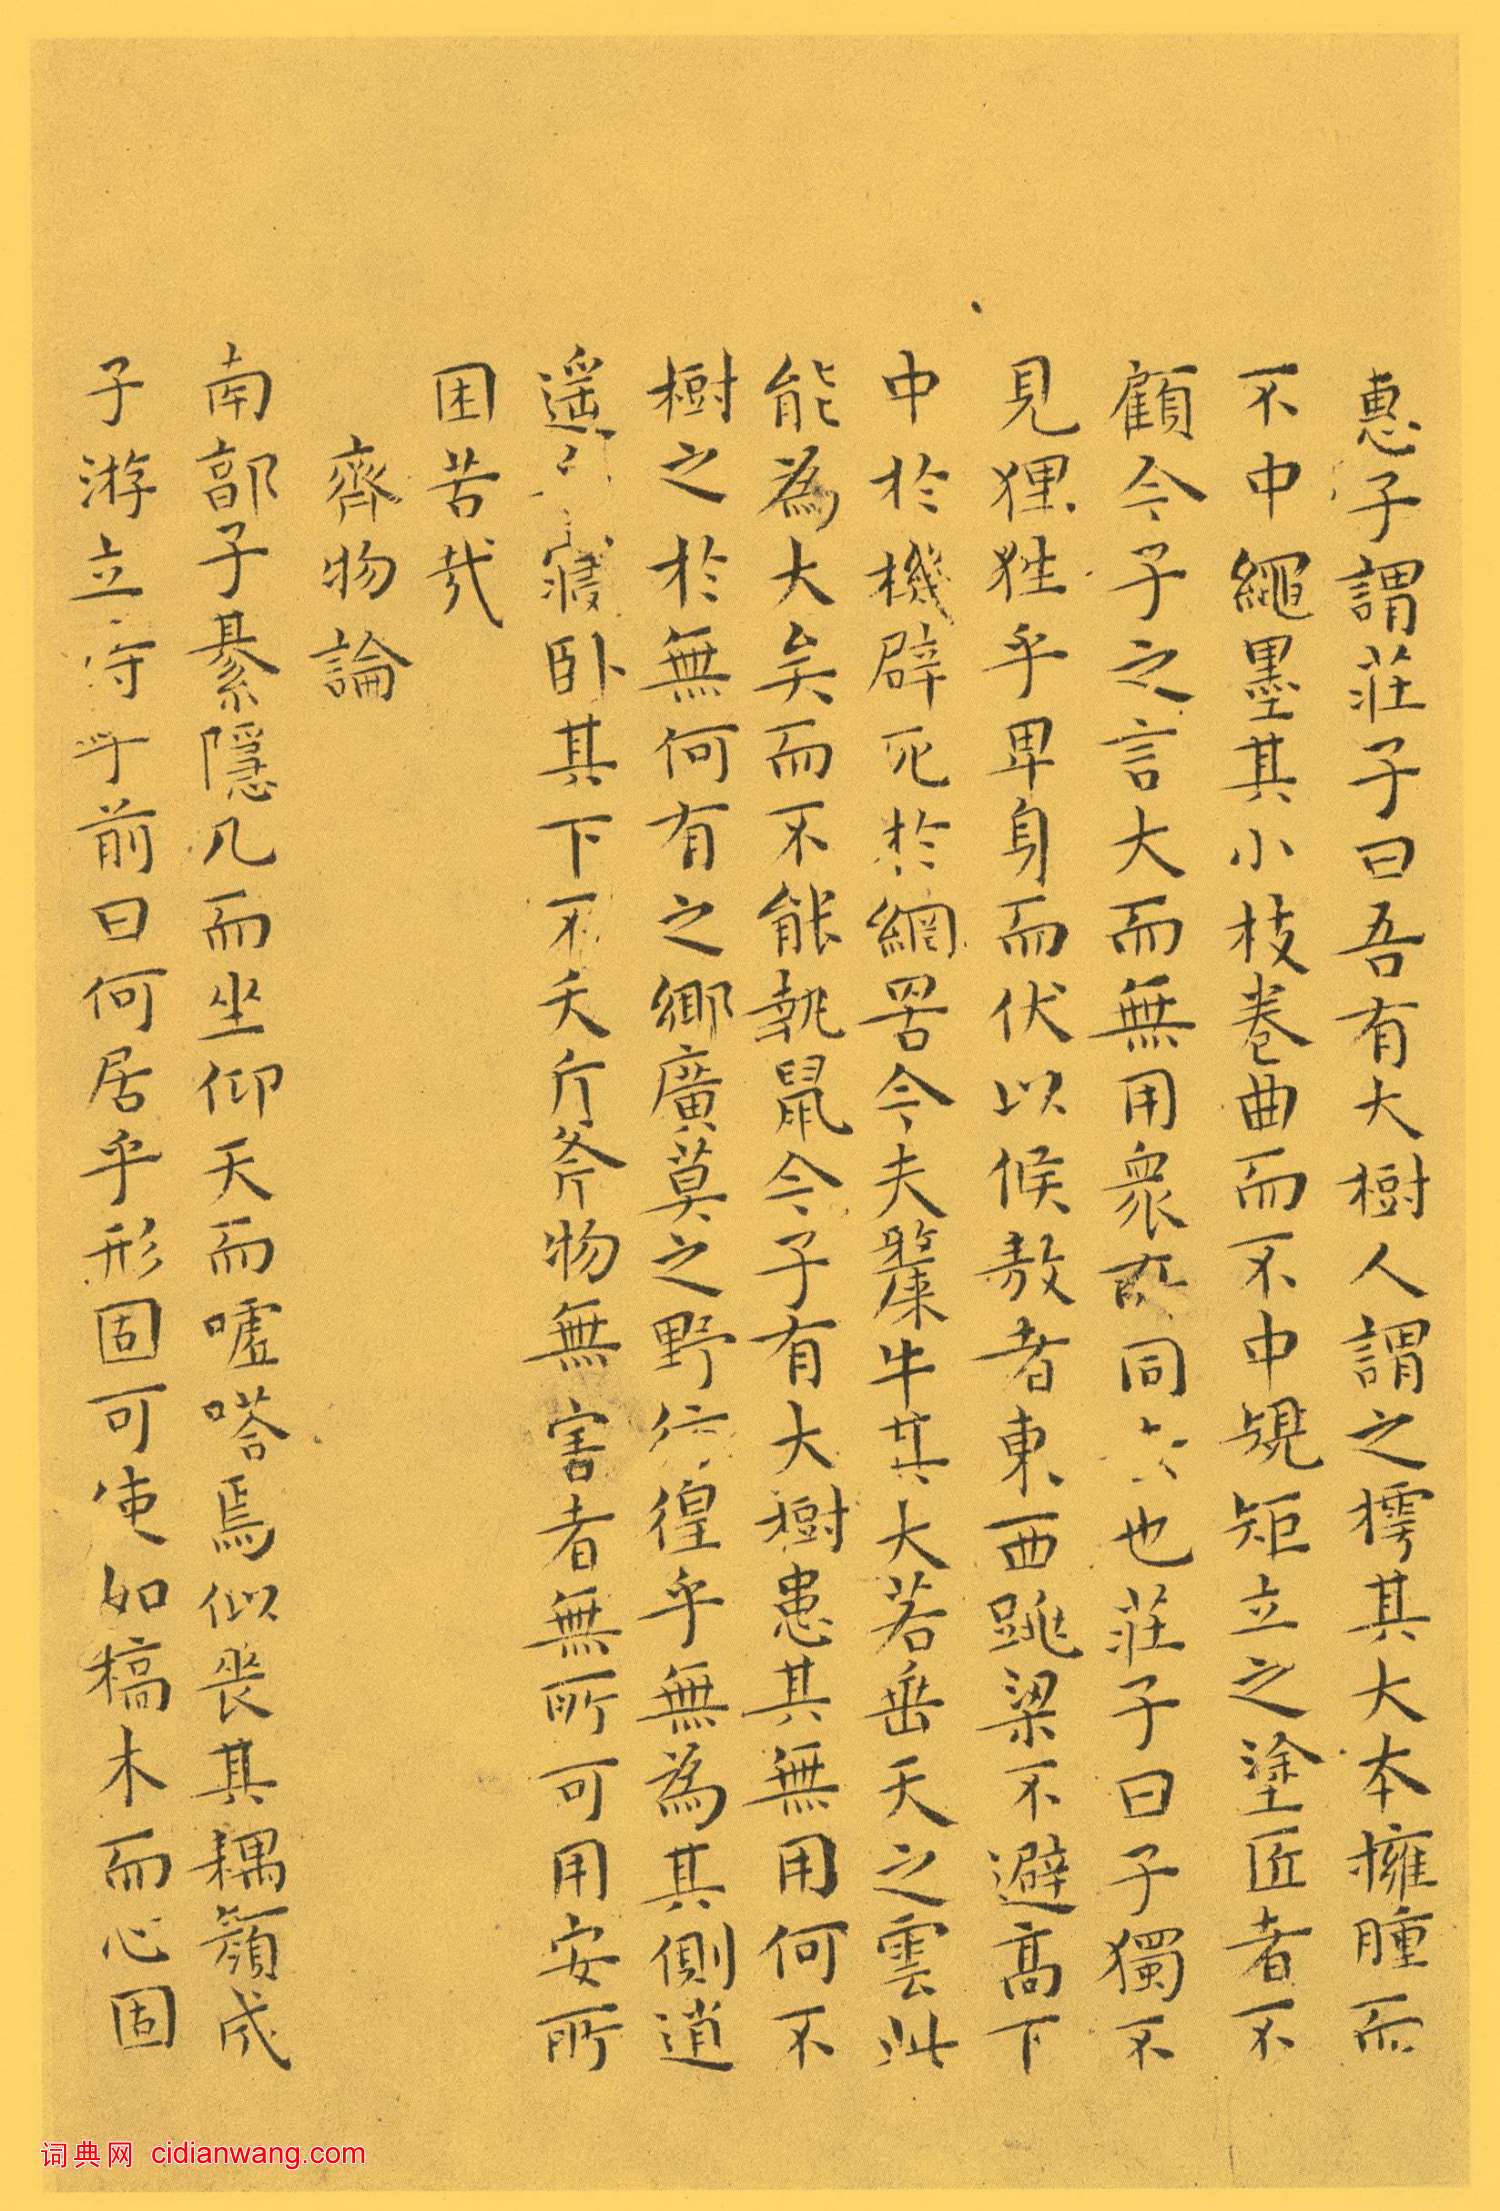 惠子謂莊子曰吾有大樹人謂之樗其大本擁腫而
不中繩墨其小枝卷曲而不中規矩立之塗匠者不
顧今子之言大而無用衆所同去也莊子曰子獨不
見狸狌乎卑身而伏以候敖者東西跳梁不避高下
中於機辟死於網罟今夫斄牛其大若垂天之雲此
能為大矣而不能執鼠今子有大樹患其無用何不
樹之於無何有之鄉廣莫之野彷徨乎無為其側逍
遥乎寢卧其下不夭斤斧物無害者無所可用安所
困苦哉
齊物論
南郭子綦隱几而坐仰天而嘘嗒焉似丧其耦顏成
子游立侍乎前曰何居乎形固可使如槁木而心固
词典网 cidianwang.com